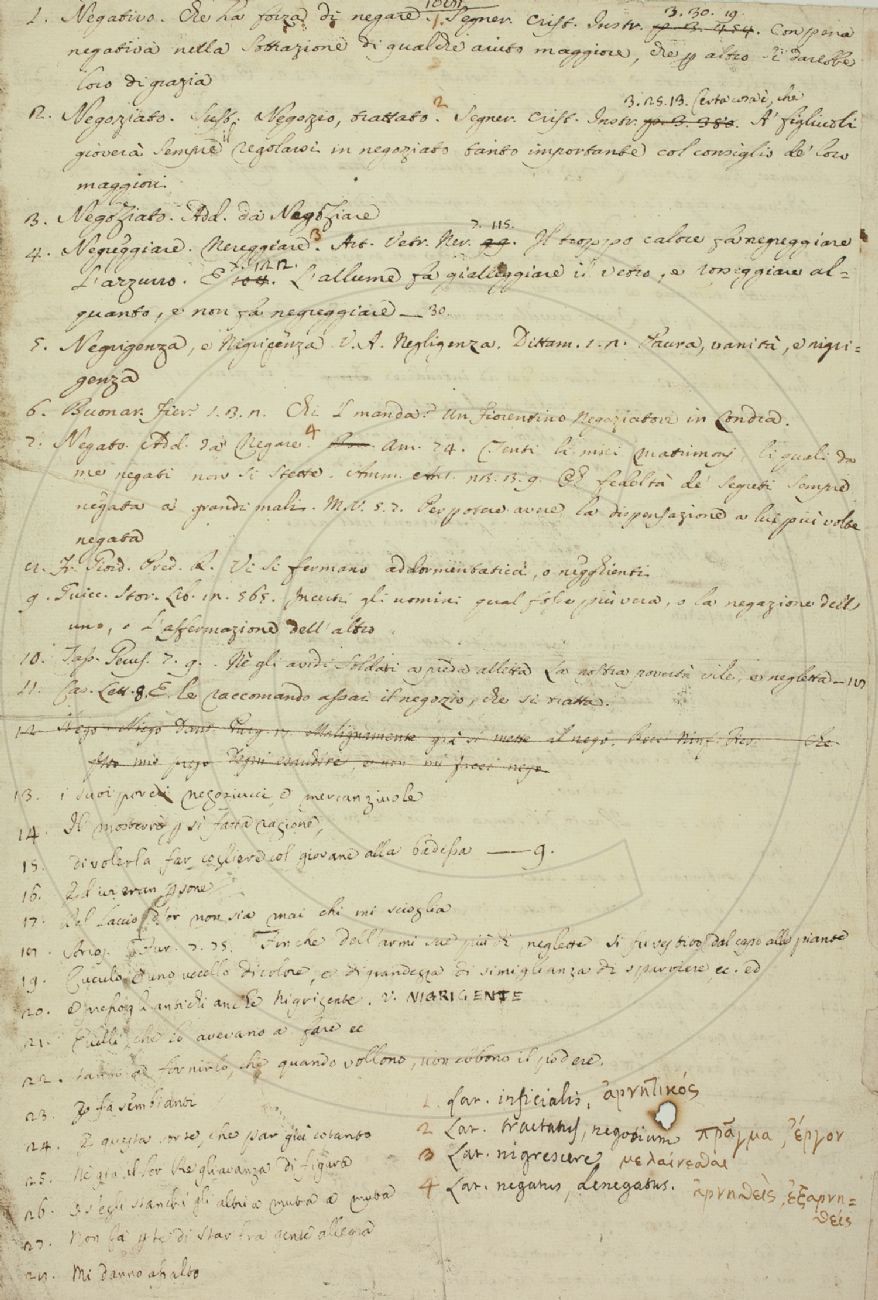 1. Negativo. Che ha forza di negare. 1. Segner. Crist. Instr. 3. 30. 19. Con pena
negativa nella sottrazione di qualche aiuto maggiore, che p altro si darebbe
loro di grazia
2. Negoziato. Sust. Negozio, trattato. 2 Segner. Crist. Instr. 3. 25. 13. Certa cosa è, che A' figliuoli
gioverà sempre il regolarsi in negoziato tanto importante col consiglio de' loro
maggiori
3. Negoziato. Add. da Negoziare
4. Negreggiare. Nereggiare. 3 Art. Vetr. Ner. 7. 115. Il troppo calore fa negreggiare
l'azzurro. E L'allume fa gialleggiare il vetro, e rosseggiare al=
quanto, e non fa negreggiare — 30.
5. Negrigenza, e Nigrigenza V. A. Negligenza. Dittam. 1. n. Paura, vanità, e nigri=
genza
6. Buonar. Fier. 1. 3. n. Chi l manda? Un fiorentino Negoziatore in Londra.
7. Negato. Add. da Negare. 4 Am. 74. Centi li miei matrimonj, li quali da
me negati non si stette. Amm. Ant. 18. 3. 9. Ch fedeltà de' segreti sempre
negata a' grandi mali. M. V. 5. 7. Per potere avere la dispensazione a lui più volte
negata
8. Fr. Giord. Pred. R. Vi si fermano addormentaticci, o negghienti
9. Guicc. Stor. Lib. 18. 565. Incerti gli uomini qual fosse più vera, o la negazione dell'
uno, o l'affermazione dell' altro
10. Tass. Gerus. 7. 9. Nè gli avidi soldati a preda alletta La nostra povertà vile, e negletta — 18
11. Cas. Lett. 8. E le raccomando assai il negozio, che si tratta.
12 Nego Niego Dant. Purg. 17. Malignamente già si mette al nego. Che
13. i suoi poveri negoziucci, e mercanziuole
14. Il mosterrò p sì fatta ragione,
15. di volerla far cogliere col giovane alla badessa — 9.
16. Ed in gran psone
17. Del laccio d'or non sia mai chi mi scioglia
18. Arios. Fur. 7. 75. Finche dell'armi sue più dì neglette si fu vestito dal capo alle piante
19. Cuculo è uno uccello di colore, e di grandezza di simiglianza di sparviere ec. ed
20. gli antichi anche Nigrigente. V. NIGRIGENTE
21. Quelli che lo avevano a fare ec
22. fornirlo, che quando vollono, non ebbono il podere.
23. fa sembianti
24. E questa sorte, che par giù cotanto
25. Nè già il Sor che gli avanza di figura
26. s'egli stanchi gli altri a muta a muta
27. Non fa p te di star fra gente allegra
28. Mi danno assalto
1. Lat. inficialis, ἀρνητικός
2 Lat. tractatus, negotium πρᾶγμα, ἔργον
3 Lat. nigrescere μελαίνεσθαι
4 Lat. negatus, denegatus. ἀρνηθείς, ἐξαρνη=
θείς